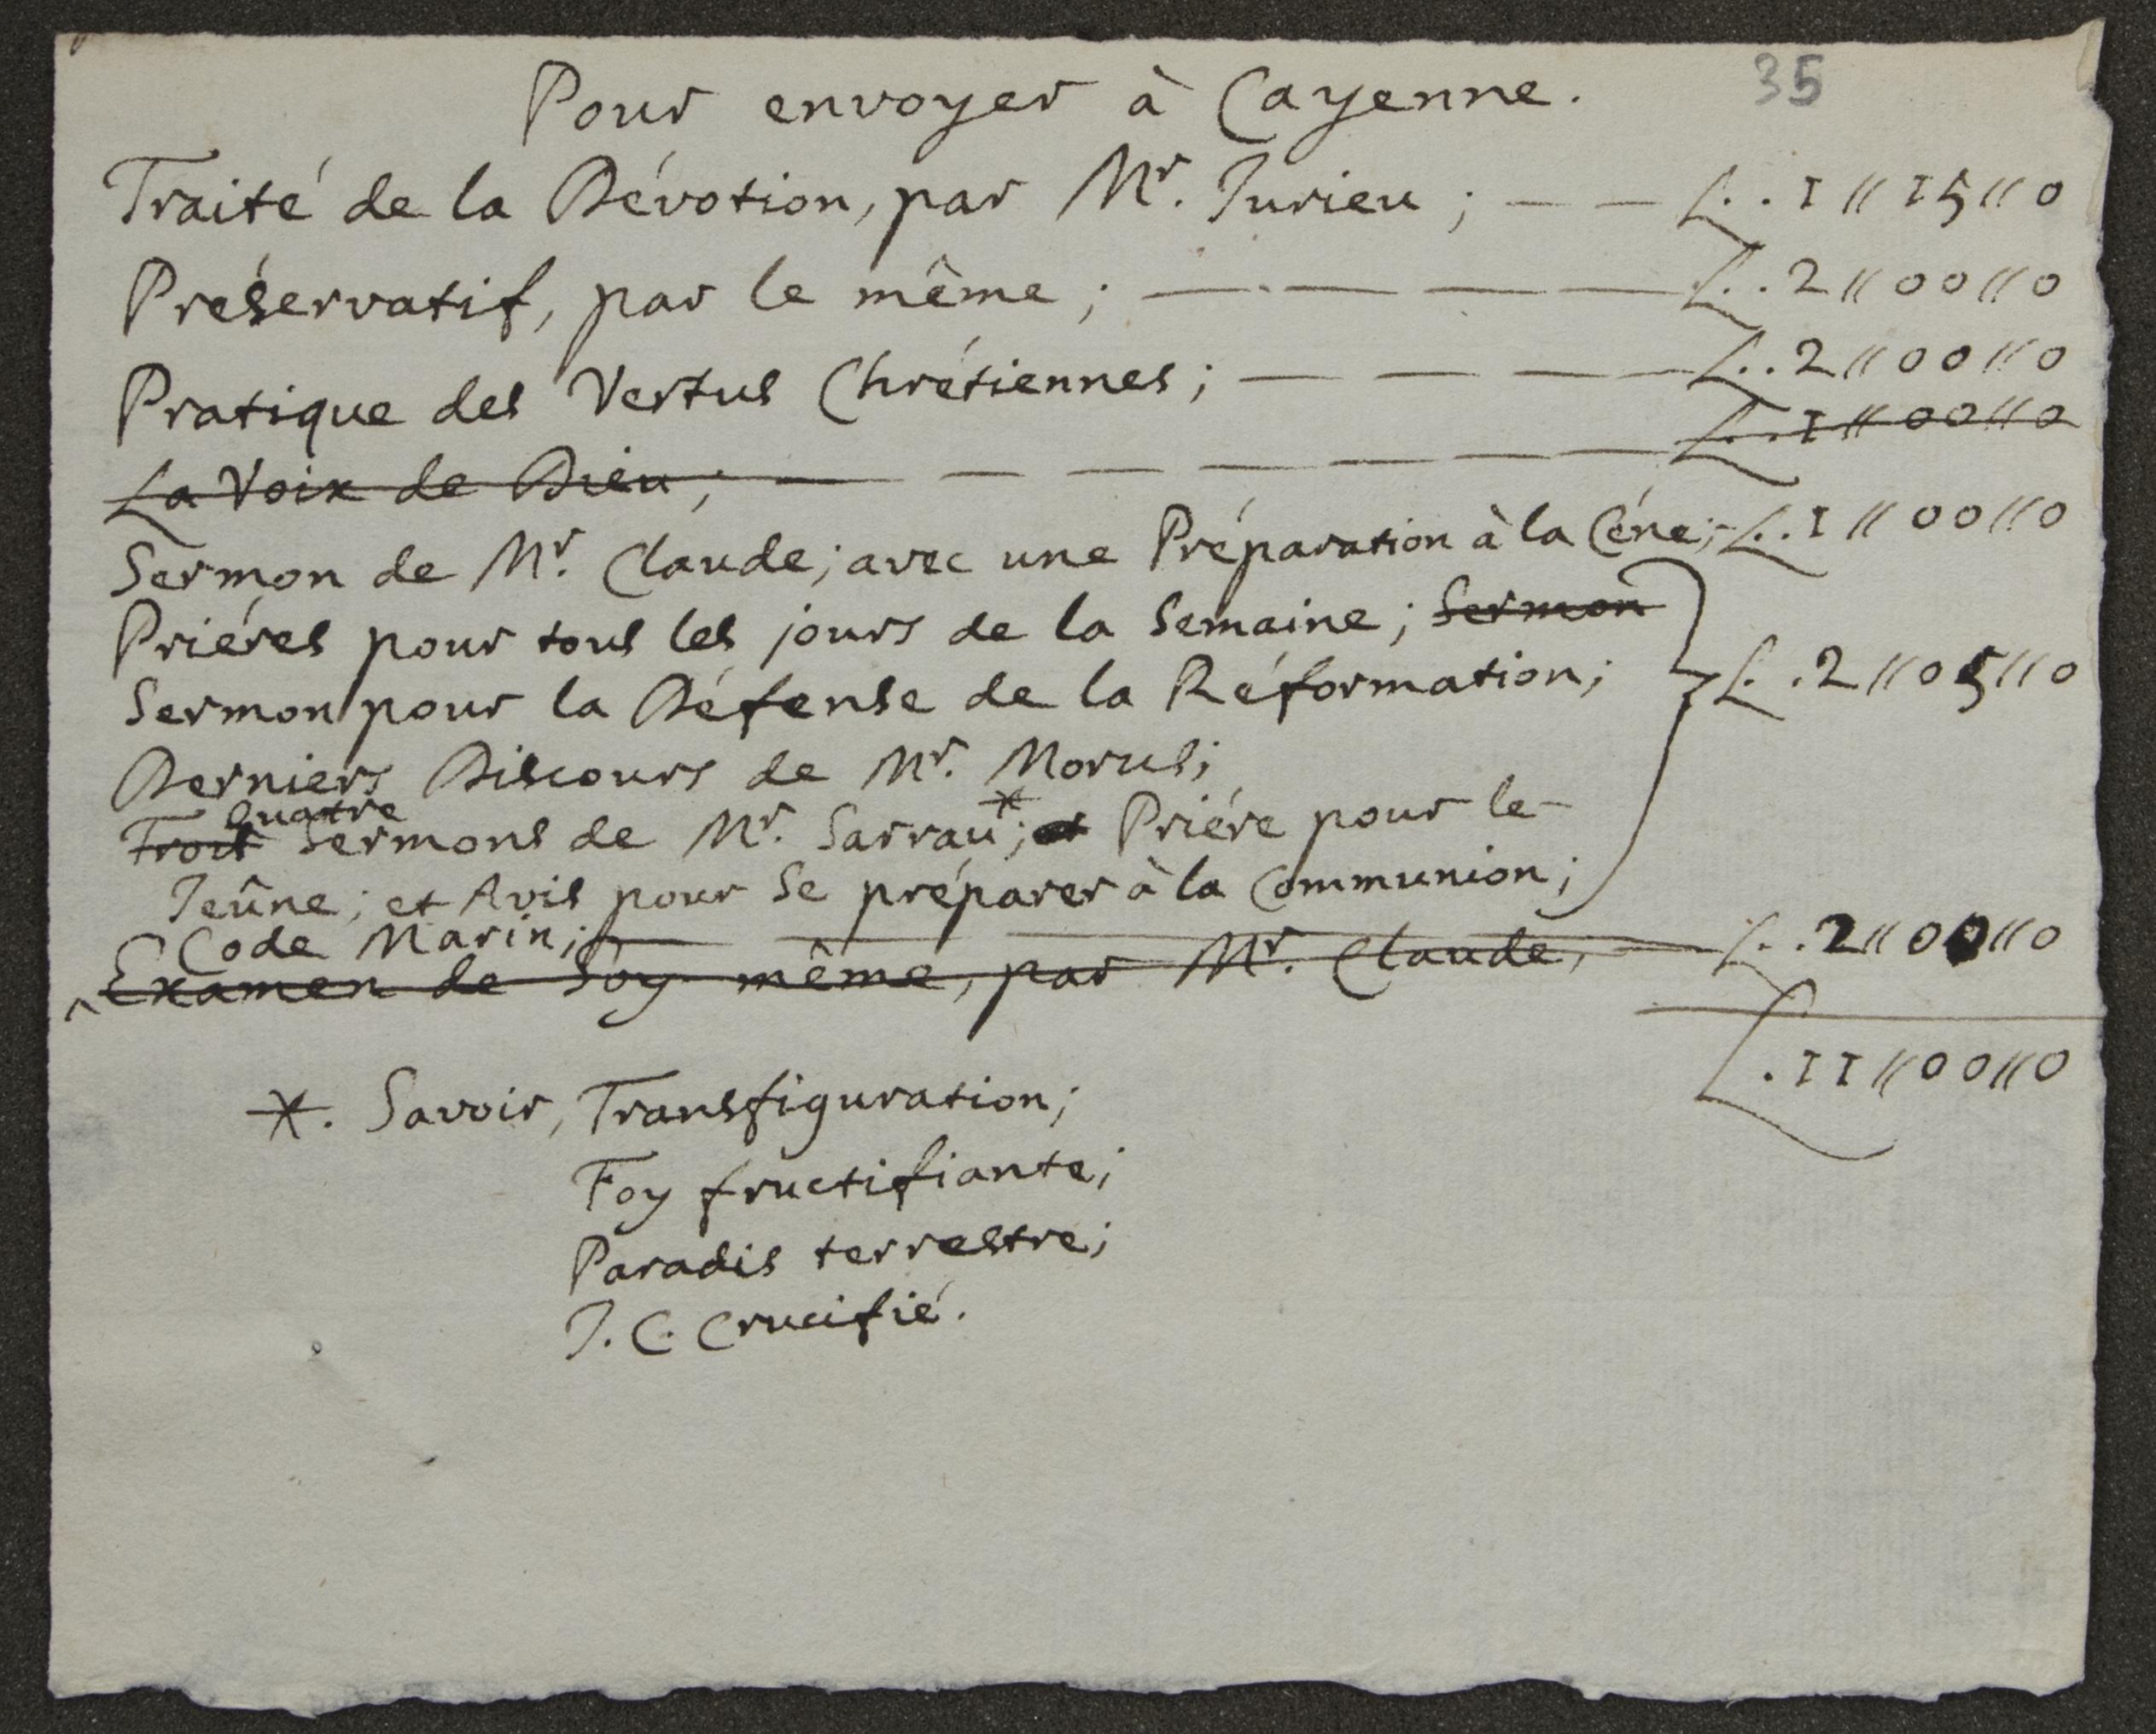 35
Pour envoyer à Cayenne.
Traité de la Dévotion, par Mr. Jurieu; — — L..1 〃 15 〃 0
Préservatif, par le même; — — — — L..2 〃 00 〃 0
Pratique des Vertus Chrétiennes; — — — L..2 〃 00 〃 0
La Voix de Dieu; — — — — — L..1 〃 00 〃 0
Sermon de Mr. Claude; avec une Préparation à la Céne;- L..1 〃 00 〃 0
Priéres pour tous les jours de la Semaine; Sermon
Sermon pour la Défense de la Réformation; L..2 〃 05 〃 0
Derniers Discours de Mr. Morus;
quatre
Trois Sermons de Mr. Sarrau*; et Priére pour le-
Jeûne; et Avis pour se préparer à la Communion;
Code Marin; — — — L..2 〃 00 〃 0
Examen de Soy-même, par Mr. Claude,
L.11 〃 00 〃 0
*. Savoir, Transfiguration;
Foy fructifiante;
Paradis terrestre;
J. C. Crucifié.